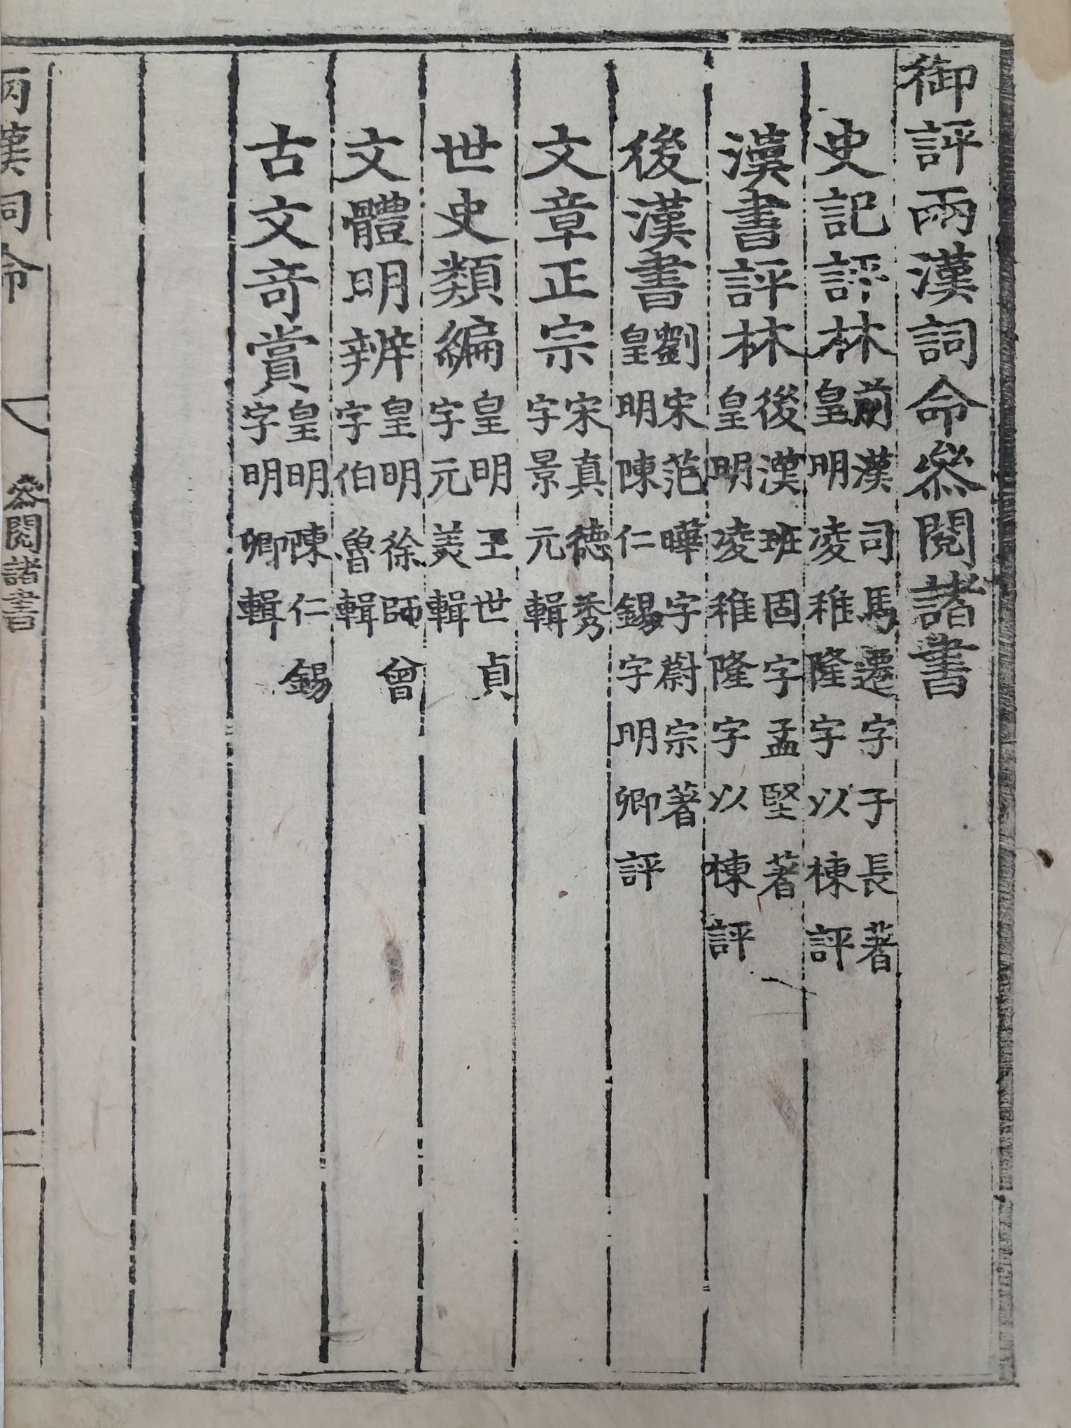 御評兩漢詞命叅閱諸書
史記評林
前漢司馬遷字子長著
皇明凌稚隆字以棟評
漢書評林
後漢班固字孟堅著
皇明凌稚隆字以棟評
後漢書
劉宋范曄字蔚宗著
皇明陳仁錫字明卿評
文章正宗
宋真德秀
字景元輯
世史類編
皇明王世貞
字元美輯
文體明辨
皇明徐師曾
字伯魯輯
古文奇賞
皇明陳仁錫
字明卿輯
兩漢詞命
叅閱諸書
一